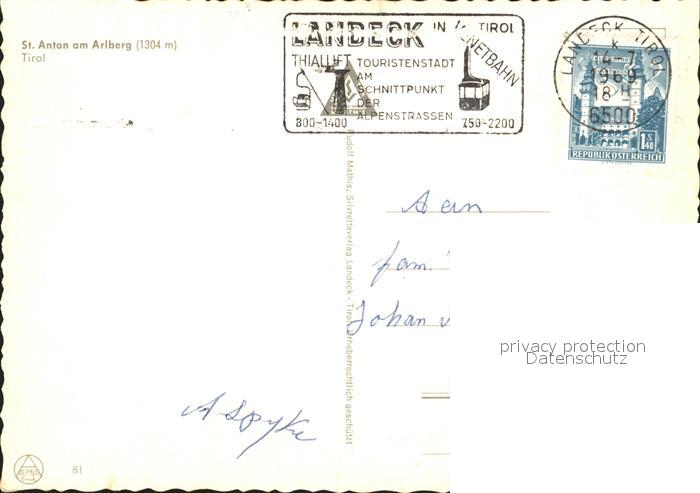 St. Anton am Arlberg (1304 m)
Tirol
LANDECK IN TIROL
THIALLIFT
TOURISTENSTADT
AM
SCHNITTPUNKT
DER
ALPENSTRASSEN
VENETBAHN
800-1400
750-2200
LANDECK, TIROL
1969
6500
1.40 S
REPUBLIK ÖSTERREICH
Rudolf Mathis, Silvrettaverlag Landeck - Tirol. Urheberrechtlich geschützt
Aan
fam.
Johan v
privacy protection
Datenschutz
A Spyke
ALPINA
81